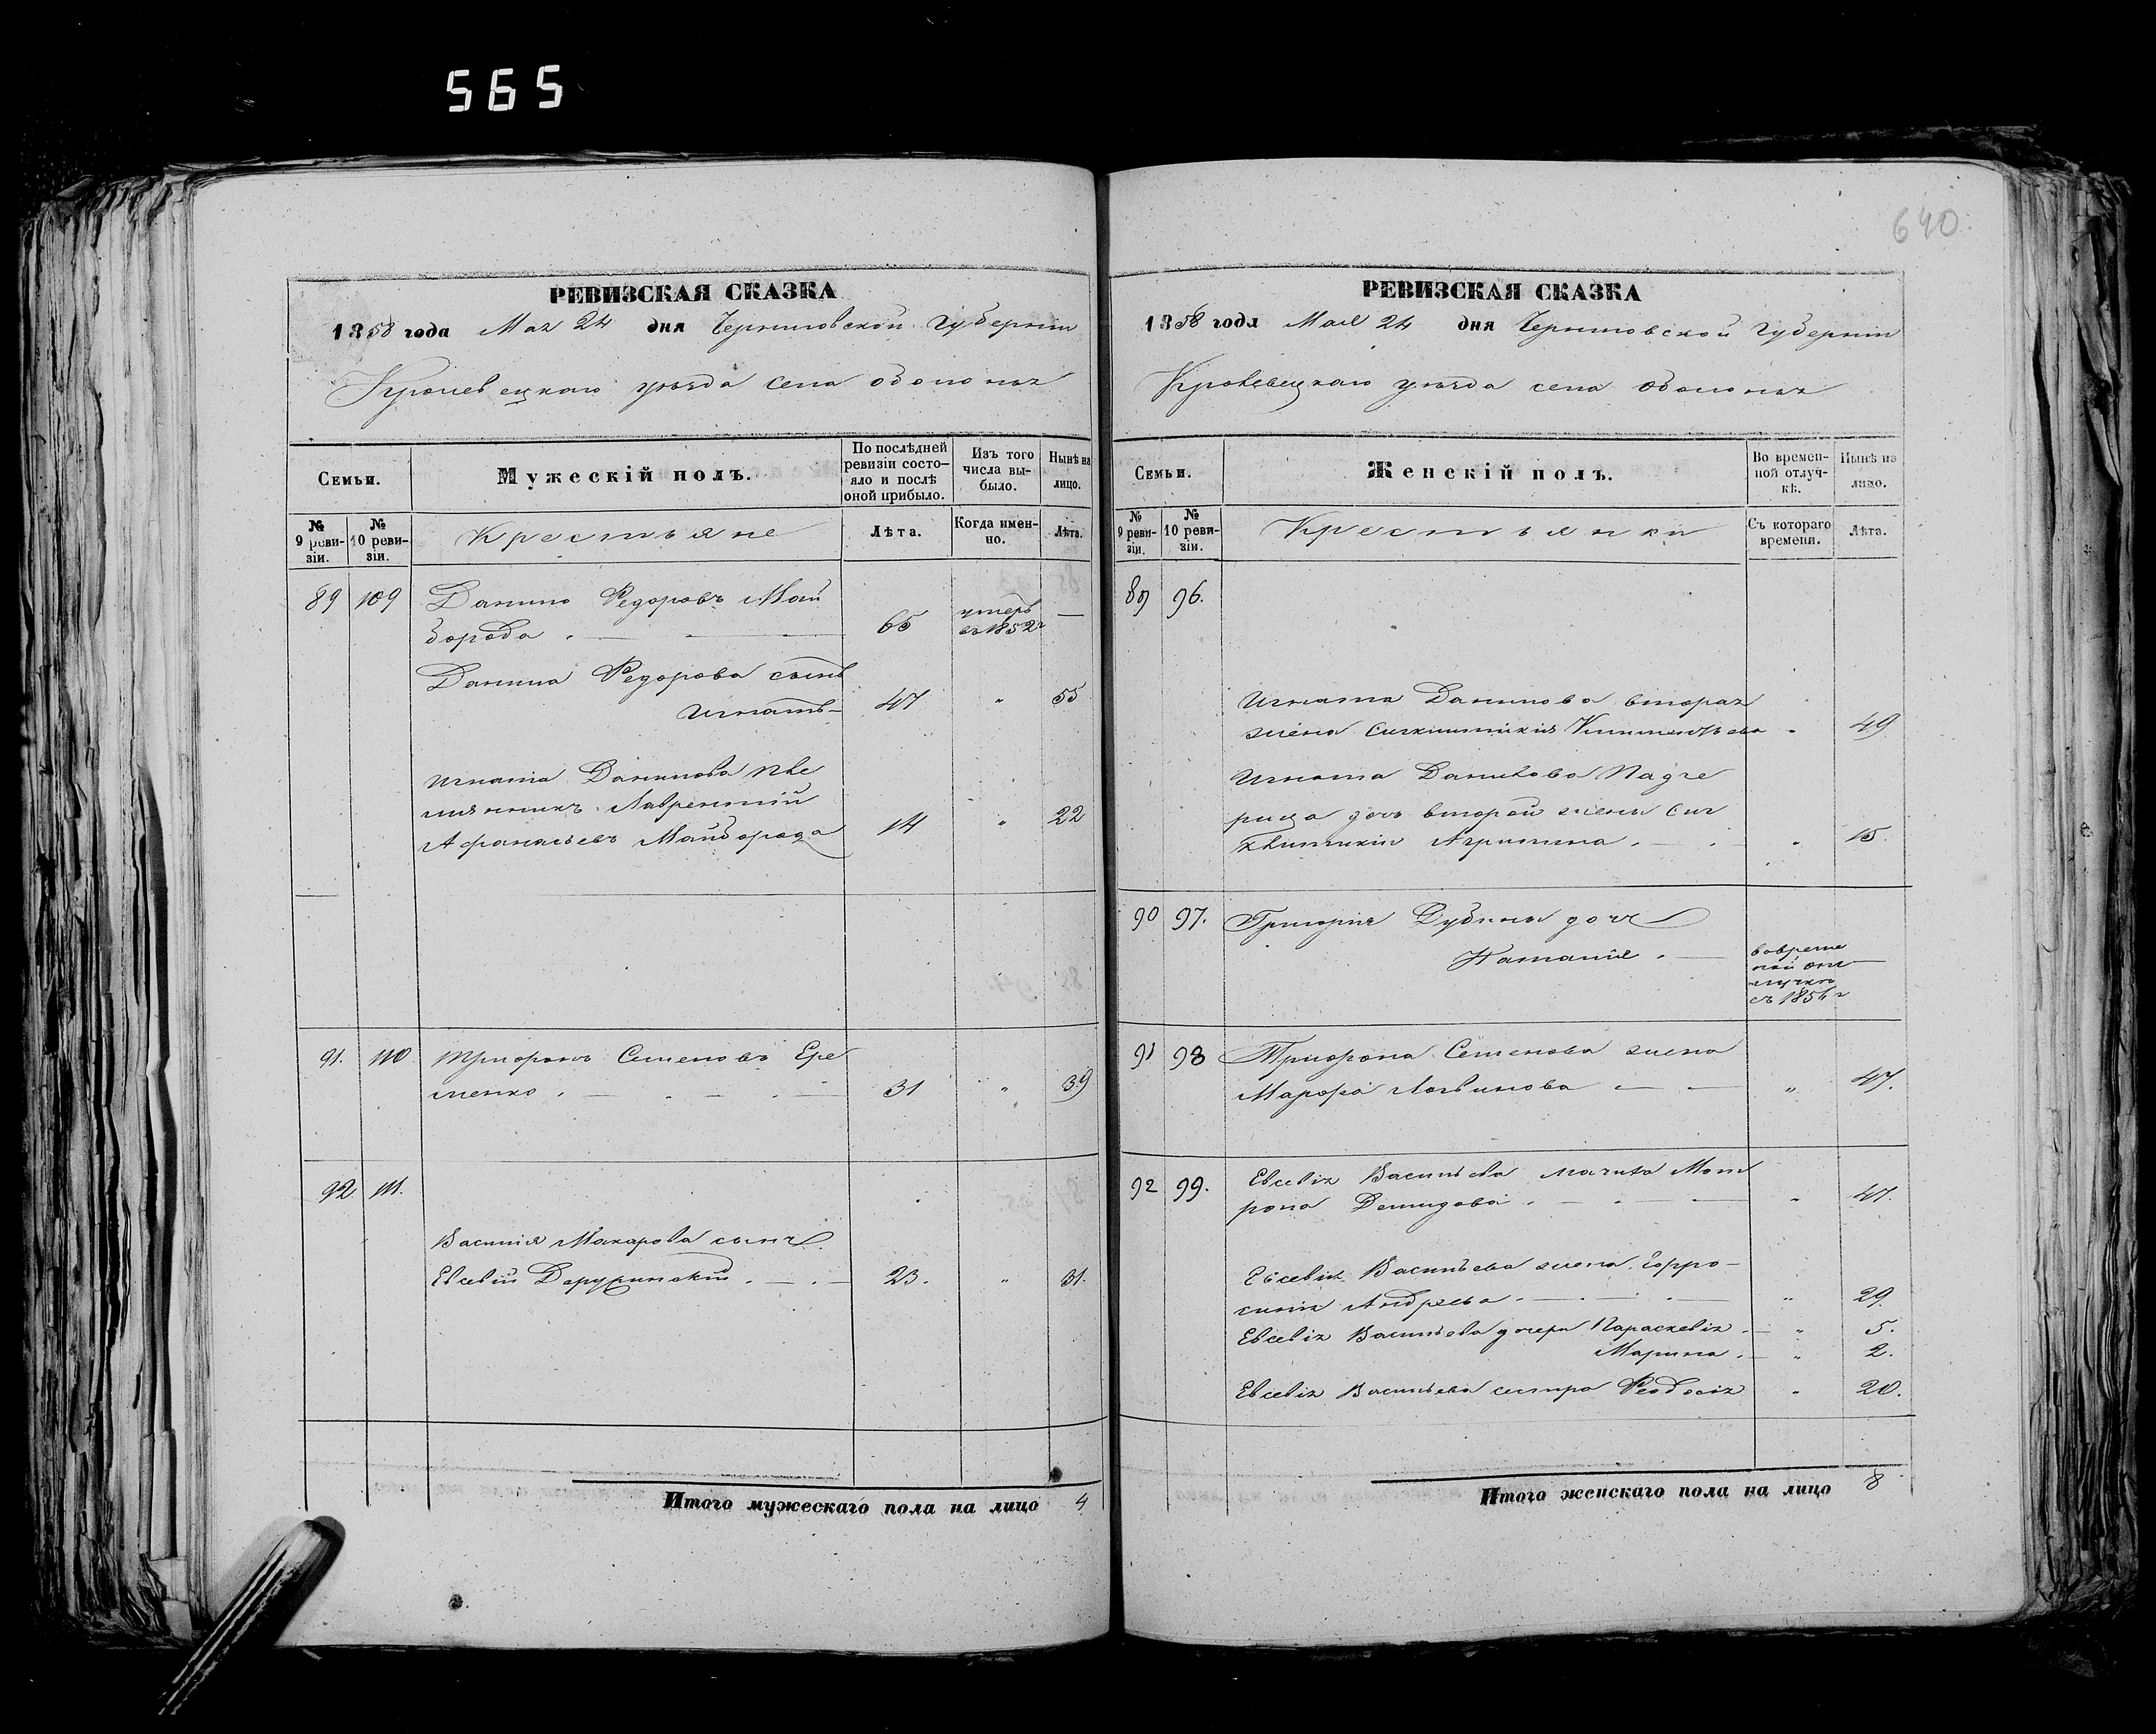 565
РЕВИЗСКАЯ СКАЗКА
1858 года Мая 24 дня Черниговской Губерніи
Кролевецкаго уѣзда села Оболонья
Семьи.
Мужескій полъ.
По послѣдней ревизіи состояло и послѣ оной прибыло.
Изъ того числа выбыло.
Нынѣ на лицо.
№ 9 ревизіи.
№ 10 ревизіи.
Крестьяне
Лѣта.
Когда именно.
Лѣта.
89 109 Данило Федоровъ Май
борода . — 65 умеръ въ 1852г —
Данила Федорова сынъ
Игнатъ — 47 " 55
Игната Данилова пле
мянникъ Лаврентій
Афанасьевъ Майборода 14 " 22
91. 110 Трифонъ Семеновъ Ере
менко . — 31 " 39
92 111.
Василія Макарова сынъ
Евсевій . — 23. " 31.
Итого мужескаго пола на лицо 4
640.
РЕВИЗСКАЯ СКАЗКА
1858 года Мая 24 дня Черниговской Губерніи
Кролевецкаго уѣзда села Оболонья
Семьи.
Женскій полъ.
Во временной отлучкѣ.
Нынѣ на лицо.
№ 9 ревизіи.
№ 10 ревизіи.
Крестьянки
Съ котораго времени.
Лѣта.
89 96.
Игната Данилова вторая
жена " 49
Игната Данилова Падче
рица дочь второй жены
Агрипина . — " 15.
90 97. Григорія Дубины дочь
Наталія . — во време
ной от
лучкѣ
съ 1856 г —
91 98 Трифона Семенова жена
Марфа Логвинова — " 47.
92 99. Евсевія Васильева мачиха Мот
рона Демидова . — " 47.
Евсевія Васильева жена Ефро-
синія Андреева . — " 29.
Евсевія Васильева дочери Параскевія . — " 5.
Марина . — " 2.
Евсевія Васильева сестра Феодосія " 20.
Итого женскаго пола на лицо 8